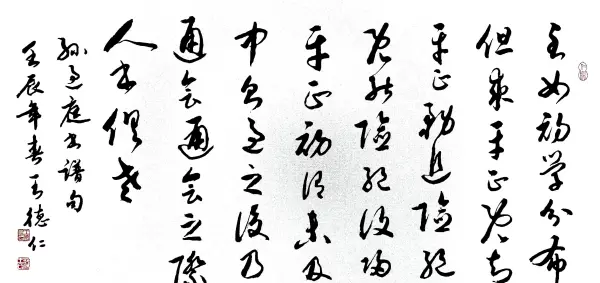 至如初學分布
但求平正既知
平正務追險絕
既能險絕復歸
平正初謂未及
中則過之後乃
通會通會之際
人書俱老
孫過庭書譜句
壬辰年春王德仁